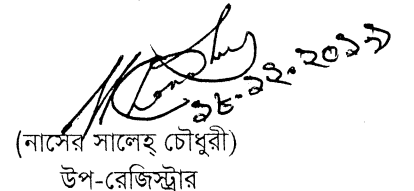 ১৮-১২-২০১৭
(নাসের সালেহ্ চৌধুরী)
উপ-রেজিস্ট্রার